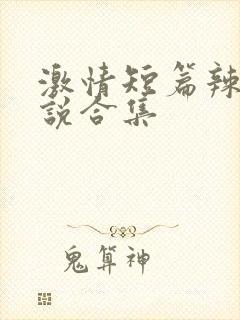 激情短篇辣
説合集
鬼算神